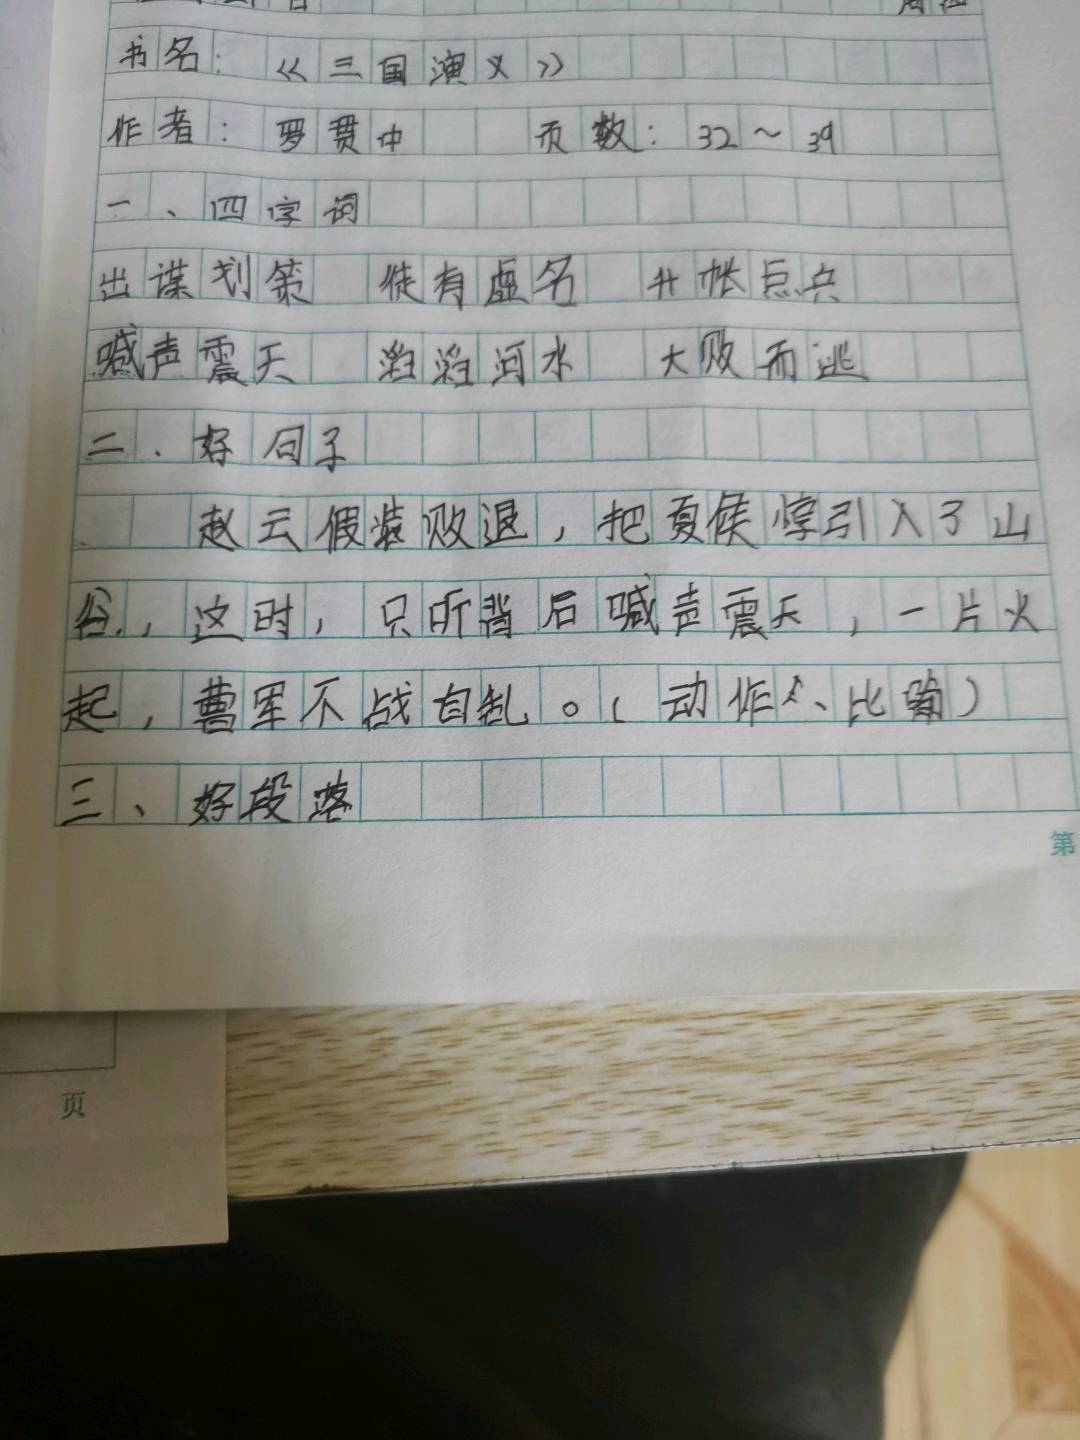 书名：《三国演义》
作者：罗贯中 页数：32～39
一、四字词
出谋划策 徒有虚名 升帐点兵
喊声震天 滔滔河水 大败而逃
二．好句子
赵云假装败退，把夏侯惇引入了山
谷，这时，只听背后喊声震天，一片火
起，曹军不战自乱。（动作、比喻）
三、好段落
第
页